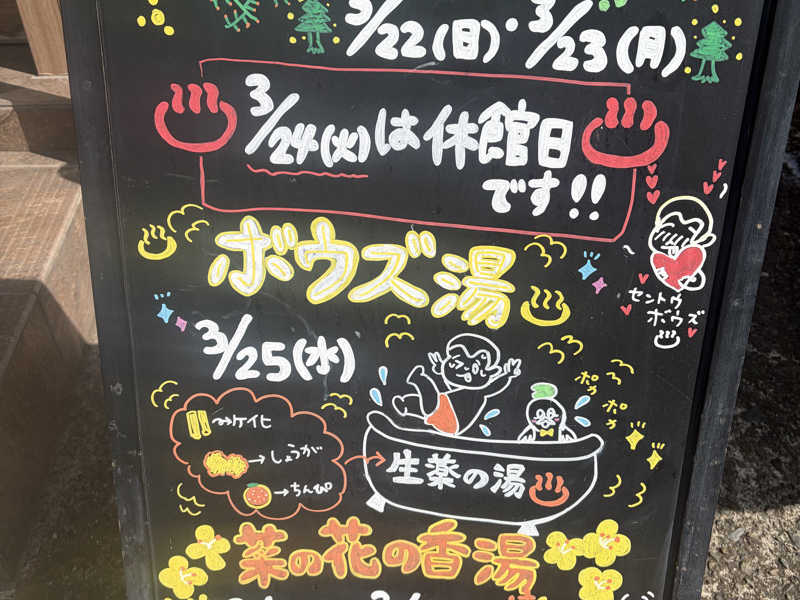 3/22(日)・3/23(月)
3/24(火)は休館日
です!!
ボウズ湯
セントウ
ボウズ
3/25(水)
ポカ
ポカ
ケイヒ
しょうが
ちんぴ
生薬の湯
菜の花の香湯